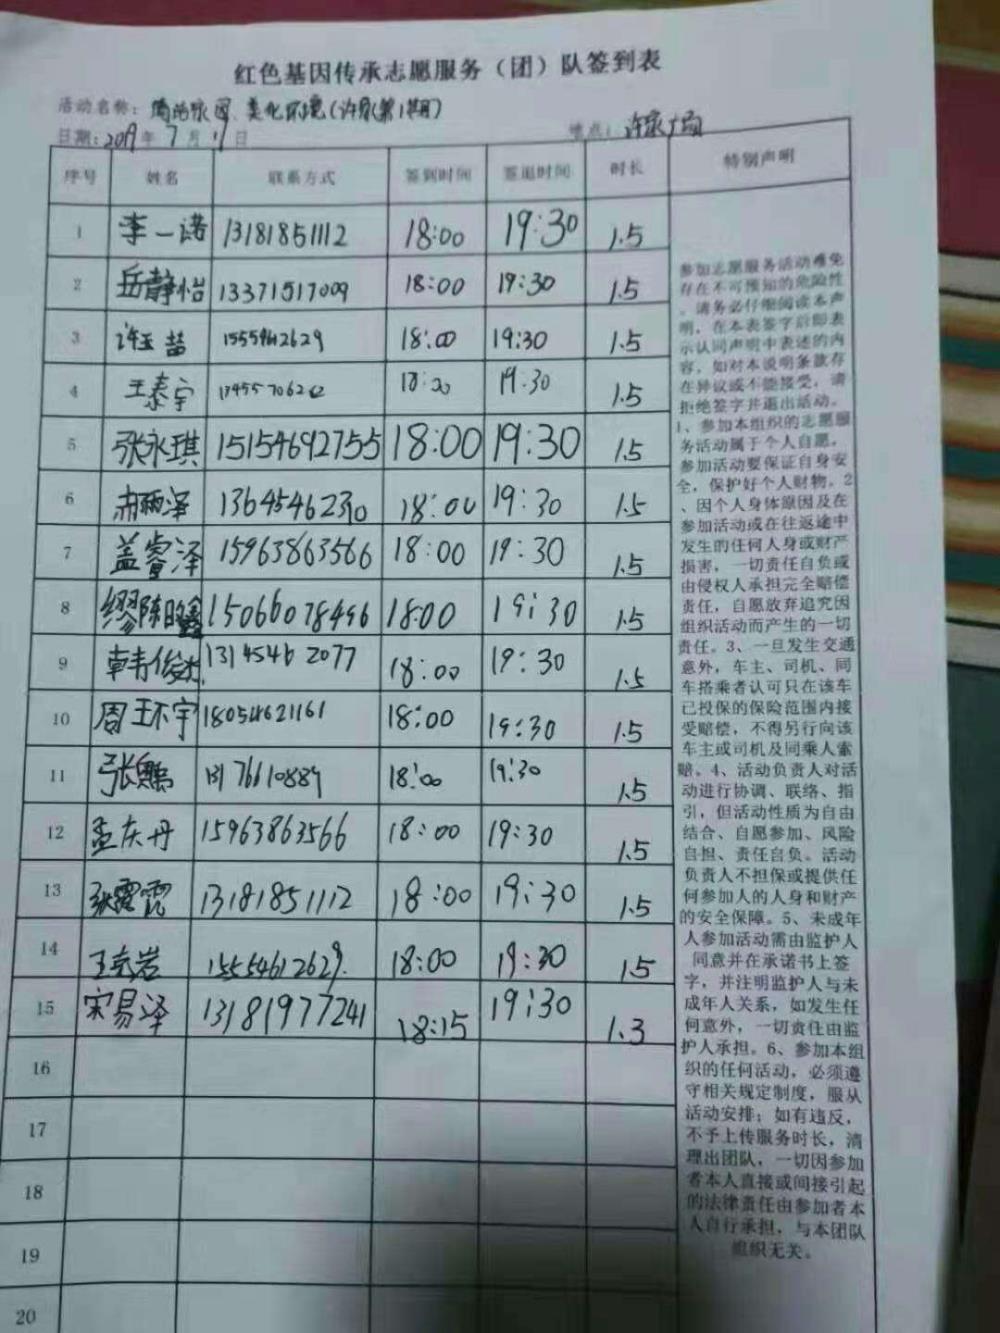 红色基因传承志愿服务（团）队签到表
活动名称：清洁家园、美化环境(许家第1期)
日期：2019年7月11日 地点：许家广场
序号 姓名 联系方式 签到时间 签退时间 时长 特别声明
1 李一诺 13181851112 18:00 19:30 1.5
2 岳静怡 13371517009 18:00 19:30 1.5
3 许玉喆 15554612629 18:00 19:30 1.5
4 王泰宇 18:00 19:30 1.5
5 张永琪 15154692755 18:00 19:30 1.5
6 13645462310 18:00 19:30 1.5
7 盖睿泽 15963863566 18:00 19:30 1.5
8 缪陈 15066078496 18:00 19:30 1.5
9 韩俊杰 13145462077 18:00 19:30 1.5
10 周环宇 18054621161 18:00 19:30 1.5
11 张鹏 13176610889 18:00 19:30 1.5
12 孟庆丹 15963863566 18:00 19:30 1.5
13 张霞霞 13181851112 18:00 19:30 1.5
14 王岩 15554612629. 18:00 19:30 1.5
15 宋易泽 13181977241 18:15 19:30 1.3
16
17
18
19
20
参加志愿服务活动难免
存在不可预知的危险性
，请务必仔细阅读本声
明，在本表签字后即表
示认同声明中表述的内
容，如对本说明条款存
在异议或不能接受，请
拒绝签字并退出活动。
1、参加本组织的志愿服
务活动属于个人自愿，
参加活动要保证自身安
全，保护好个人财物。2
、因个人身体原因及在
参加活动或在往返途中
发生的任何人身或财产
损害，一切责任自负或
由侵权人承担完全赔偿
责任，自愿放弃追究因
组织活动而产生的一切
责任。3、一旦发生交通
意外，车主、司机、同
车搭乘者认可只在该车
已投保的保险范围内接
受赔偿，不得另行向该
车主或司机及同乘人索
赔。4、活动负责人对活
动进行协调、联络、指
引，但活动性质为自由
结合、自愿参加、风险
自担、责任自负。活动
负责人不担保或提供任
何参加人的人身和财产
的安全保障。5、未成年
人参加活动需由监护人
同意并在承诺书上签
字，并注明监护人与未
成年人关系，如发生任
何意外，一切责任由监
护人承担。6、参加本组
织的任何活动，必须遵
守相关规定制度，服从
活动安排；如有违反，
不予上传服务时长，清
理出团队，一切因参加
者本人直接或间接引起
的法律责任由参加者本
人自行承担，与本团队
组织无关。